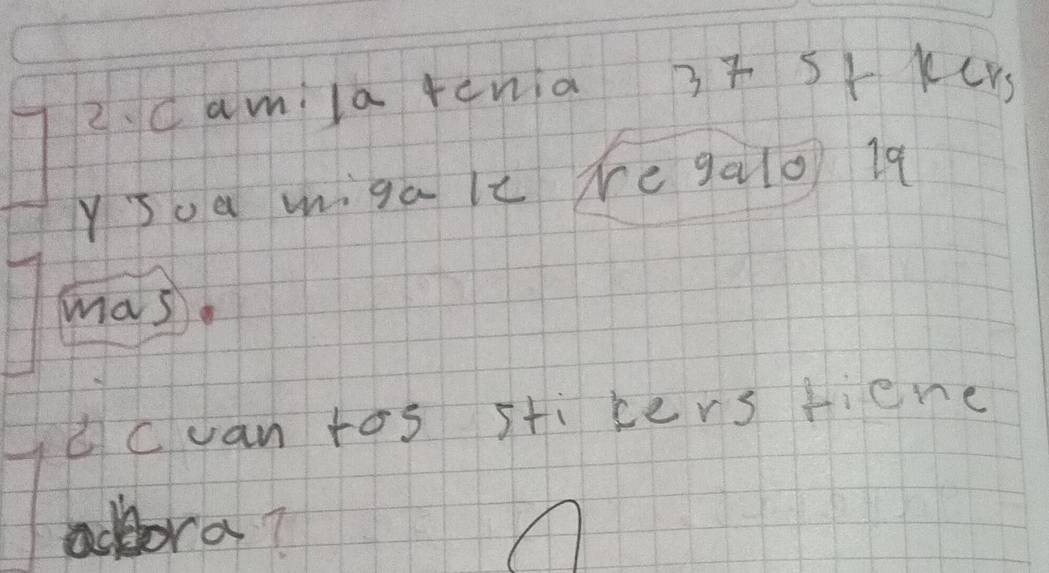 2. Camila tenia 37 stkers
y su a miga le regalo 19
mas.
¿cuan tos stikers tiene
ahora?